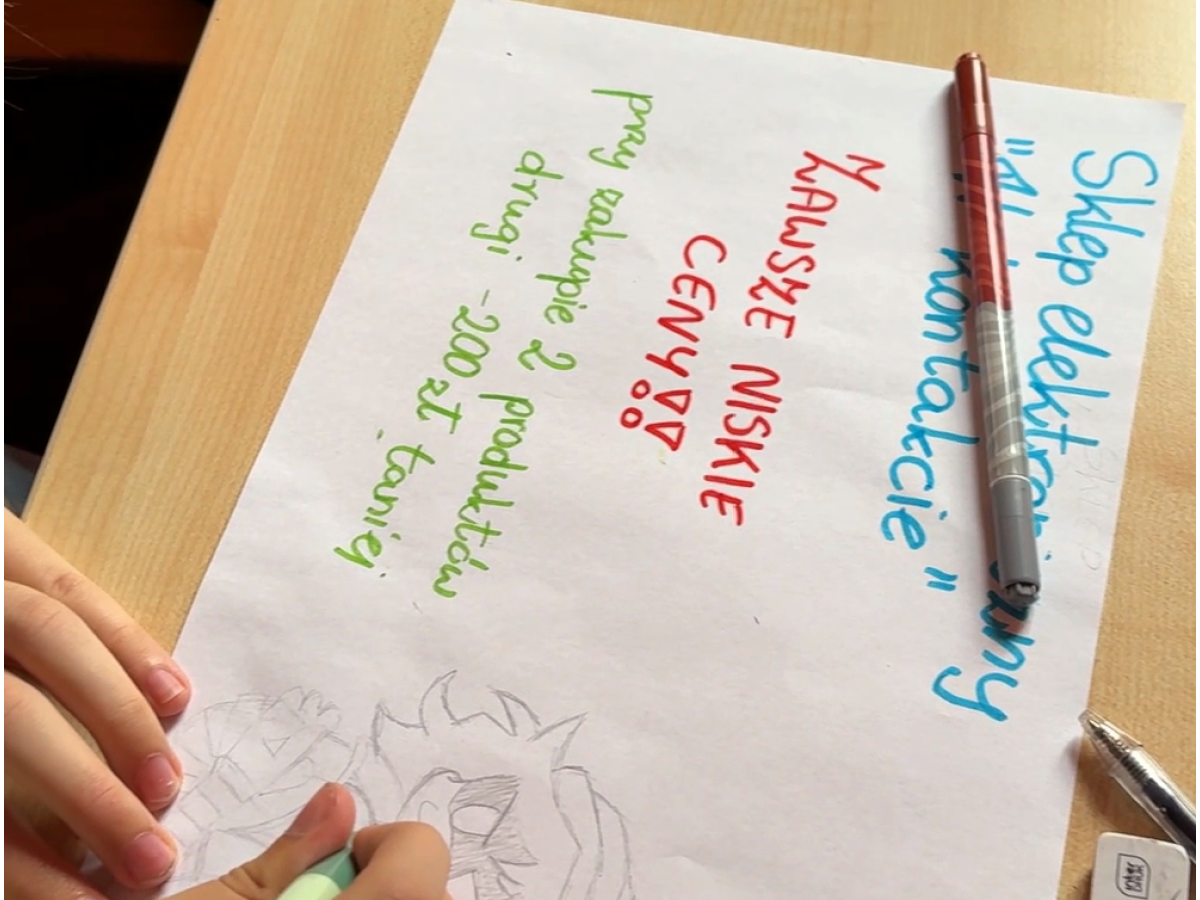 Sklep elektroniczny
kontakcie"
ZAWSZE NISKIE
CENY!!
przy zakupie 2 produktów
drugi -200 zł taniej